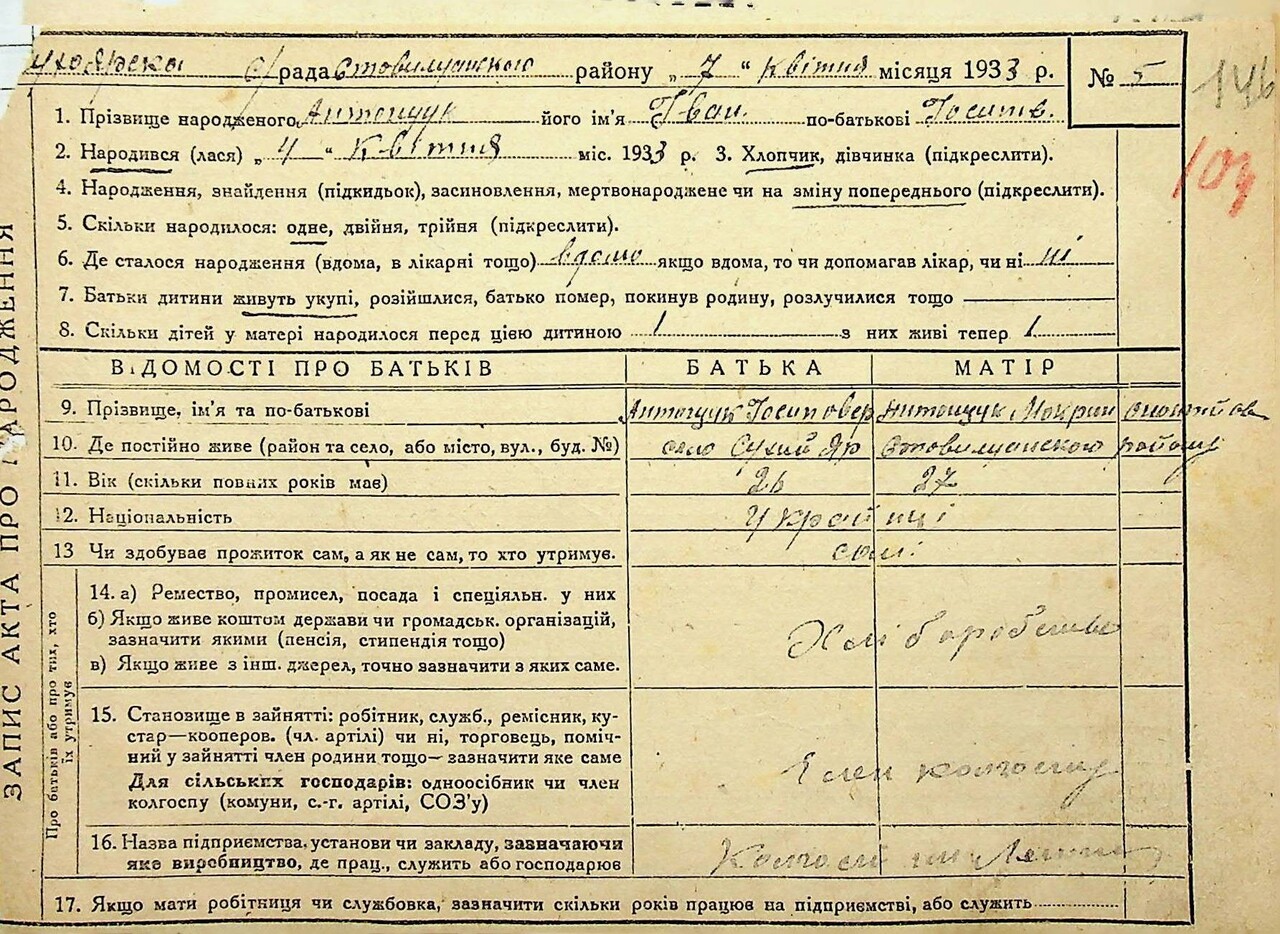 с/рада Стовилуанского району „ 7 “ квітня місяця 1933 р. № 5
146
1. Прізвище народженого Антощук його ім'я Іван. по-батькові Йосипів.
103
2. Народився (лася) „ 4 “ Квітня міс. 1933 р. 3. Хлопчик, дівчинка (підкреслити).
4. Народження, знайдення (підкидьок), засиновлення, мертвонароджене чи на зміну попереднього (підкреслити).
5. Скільки народилося: одне, двійня, трійня (підкреслити).
6. Де сталося народження (вдома, в лікарні тощо) вдома якщо вдома, то чи допомагав лікар, чи ні ні
7. Батьки дитини живуть укупі, розійшлися, батько помер, покинув родину, розлучилися тощо
8. Скільки дітей у матері народилося перед цією дитиною 1 з них живі тепер 1
ВІДОМОСТІ ПРО БАТЬКІВ БАТЬКА МАТІР
9. Прізвище, ім'я та по-батькові Антощук Йосип Антощук Мокрин
10. Де постійно живе (район та село, або місто, вул., буд. №) село Сухий Яр району
11. Вік (скільки повних років має) 26 27
12. Національність Українці
13 Чи здобував прожиток сам, а як не сам, то хто утримує. самі
14. а) Ремество, промисел, посада і спеціяльн. у них
б) Якщо живе коштом держави чи громадськ. організацій,
зазначити якими (пенсія, стипендія тощо)
Хліборобство
в) Якщо живе з інш. джерел, точно зазначити з яких саме.
15. Становище в зайнятті: робітник, служб., ремісник, ку-
стар—кооперов. (чл. артілі) чи ні, торговець, поміч-
ний у зайнятті член родини тощо— зазначити яке саме
Для сільських господарів: одноосібник чи член
колгоспу (комуни, с.-г. артілі, СОЗ'у)
Член колгоспу
16. Назва підприємства, установи чи закладу, зазначаючи
яке виробництво, де прац., служить або господарює Колгосп ім Леніна
17. Якщо мати робітниця чи службовка, зазначити скільки років працює на підприємстві, або служить
ЗАПИС АКТА ПРО НАРОДЖЕННЯ
Про батьків або про тих, хто
їх утримує